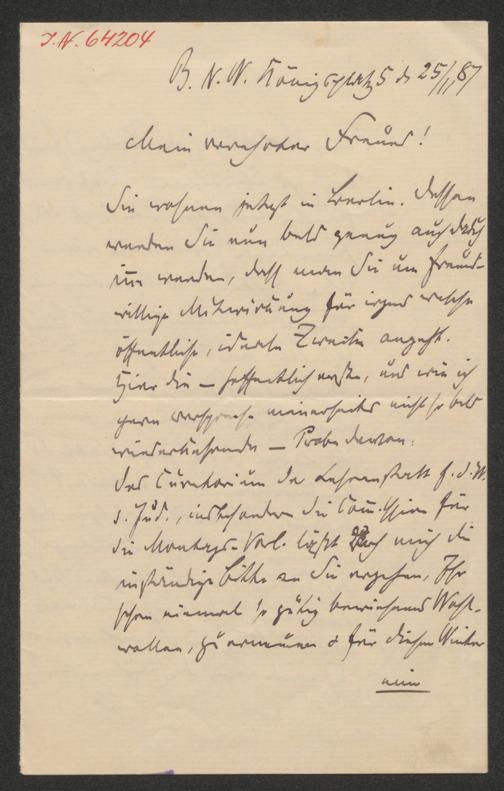 J.N. 64204
B. N. W. Königsplatz 5 d. 25/1 87
Mein verehrter Freund!
Sie wohnen jetzt in Berlin. Dessen
werden Sie nun bald genug auch dadurch
inne werden, daß man Sie um freund-
willige Mitwirkung für irgend welche
öffentliche, ideale Zwecke angeht.
Hier die – hoffentlich erste, und wie ich
gern verspreche meinerseits nicht so bald
wiederkehrende – Probe davon:
Das Curatorium der Lehranstalt f. d. W.
d. Jud., insbesondere die Commission für
die Montags-Vorl. läßt durch mich die
inständige Bitte an Sie ergehen, Ihr
schon einmal so gütig bewiesenes Wohl-
wollen, zu erneuern & für diesen Winter
eine